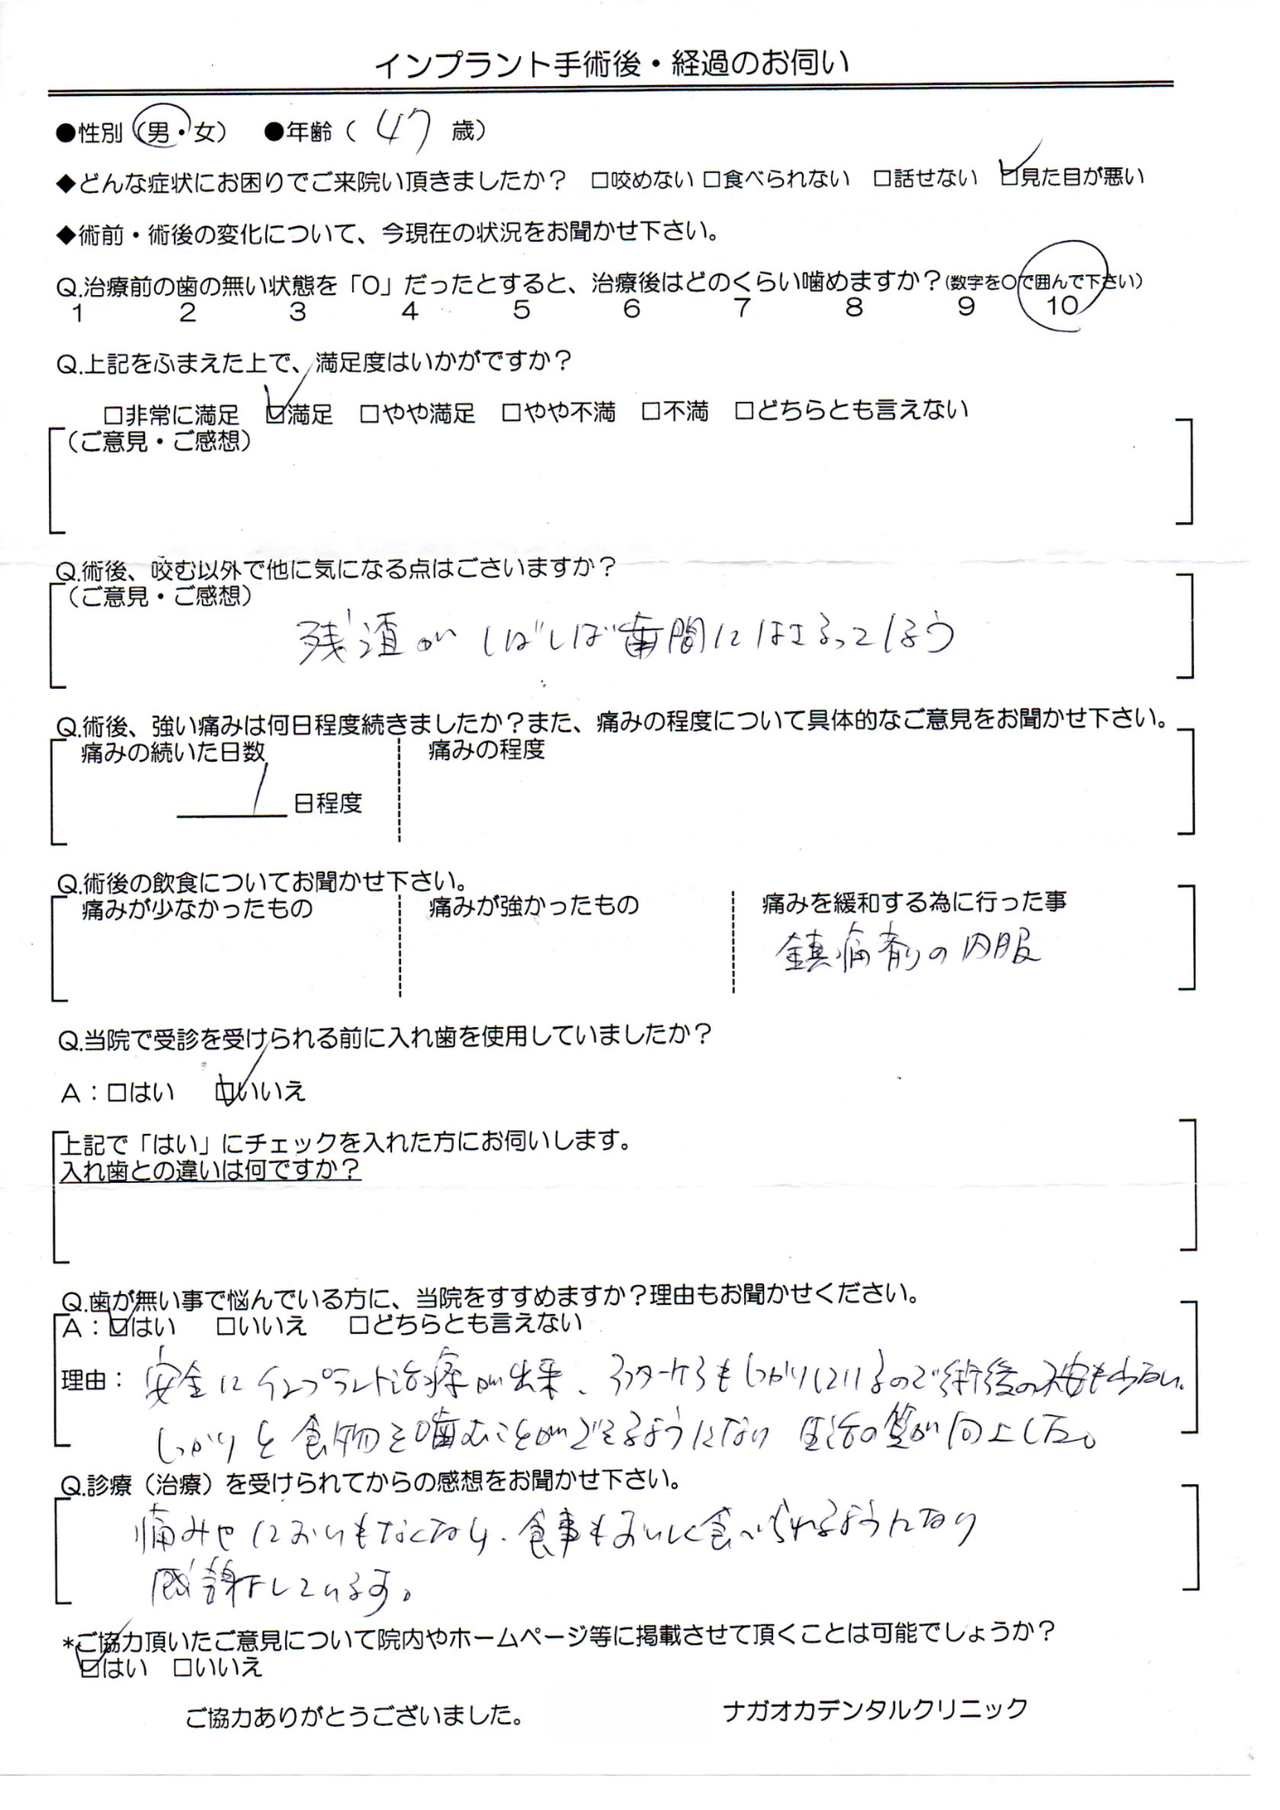 インプラント手術後・経過のお伺い
●性別（男・女） ●年齢（ 47 歳）
◆どんな症状にお困りでご来院い頂きましたか？ □咬めない □食べられない □話せない ☑見た目が悪い
◆術前・術後の変化について、今現在の状況をお聞かせ下さい。
Q.治療前の歯の無い状態を「0」だったとすると、治療後はどのくらい噛めますか？(数字を○で囲んで下さい)
1 2 3 4 5 6 7 8 9 10
Q.上記をふまえた上で、満足度はいかがですか？
□非常に満足 ☑満足 □やや満足 □やや不満 □不満 □どちらとも言えない
（ご意見・ご感想）
Q.術後、咬む以外で他に気になる点はごさいますか？
（ご意見・ご感想）
残渣が しばしば歯間にはさまってしまう
Q.術後、強い痛みは何日程度続きましたか？また、痛みの程度について具体的なご意見をお聞かせ下さい。
痛みの続いた日数 痛みの程度
1 日程度
Q.術後の飲食についてお聞かせ下さい。
痛みが少なかったもの 痛みが強かったもの 痛みを緩和する為に行った事
鎮痛剤の内服
Q.当院で受診を受けられる前に入れ歯を使用していましたか？
A：□はい ☑いいえ
上記で「はい」にチェックを入れた方にお伺いします。
入れ歯との違いは何ですか？
Q.歯が無い事で悩んでいる方に、当院をすすめますか？理由もお聞かせください。
A：☑はい □いいえ □どちらとも言えない
理由： 安全にインプラント治療が出来、アフターケアもしっかりしているので術後の不安も少ない。
しっかりと食物を噛むことができるようになり 生活の質が向上した。
Q.診療（治療）を受けられてからの感想をお聞かせ下さい。
痛みやにおいもなくなり、食事もおいしく食べられるようになり
感謝しています。
*ご協力頂いたご意見について院内やホームページ等に掲載させて頂くことは可能でしょうか？
☑はい □いいえ
ご協力ありがとうございました。 ナガオカデンタルクリニック